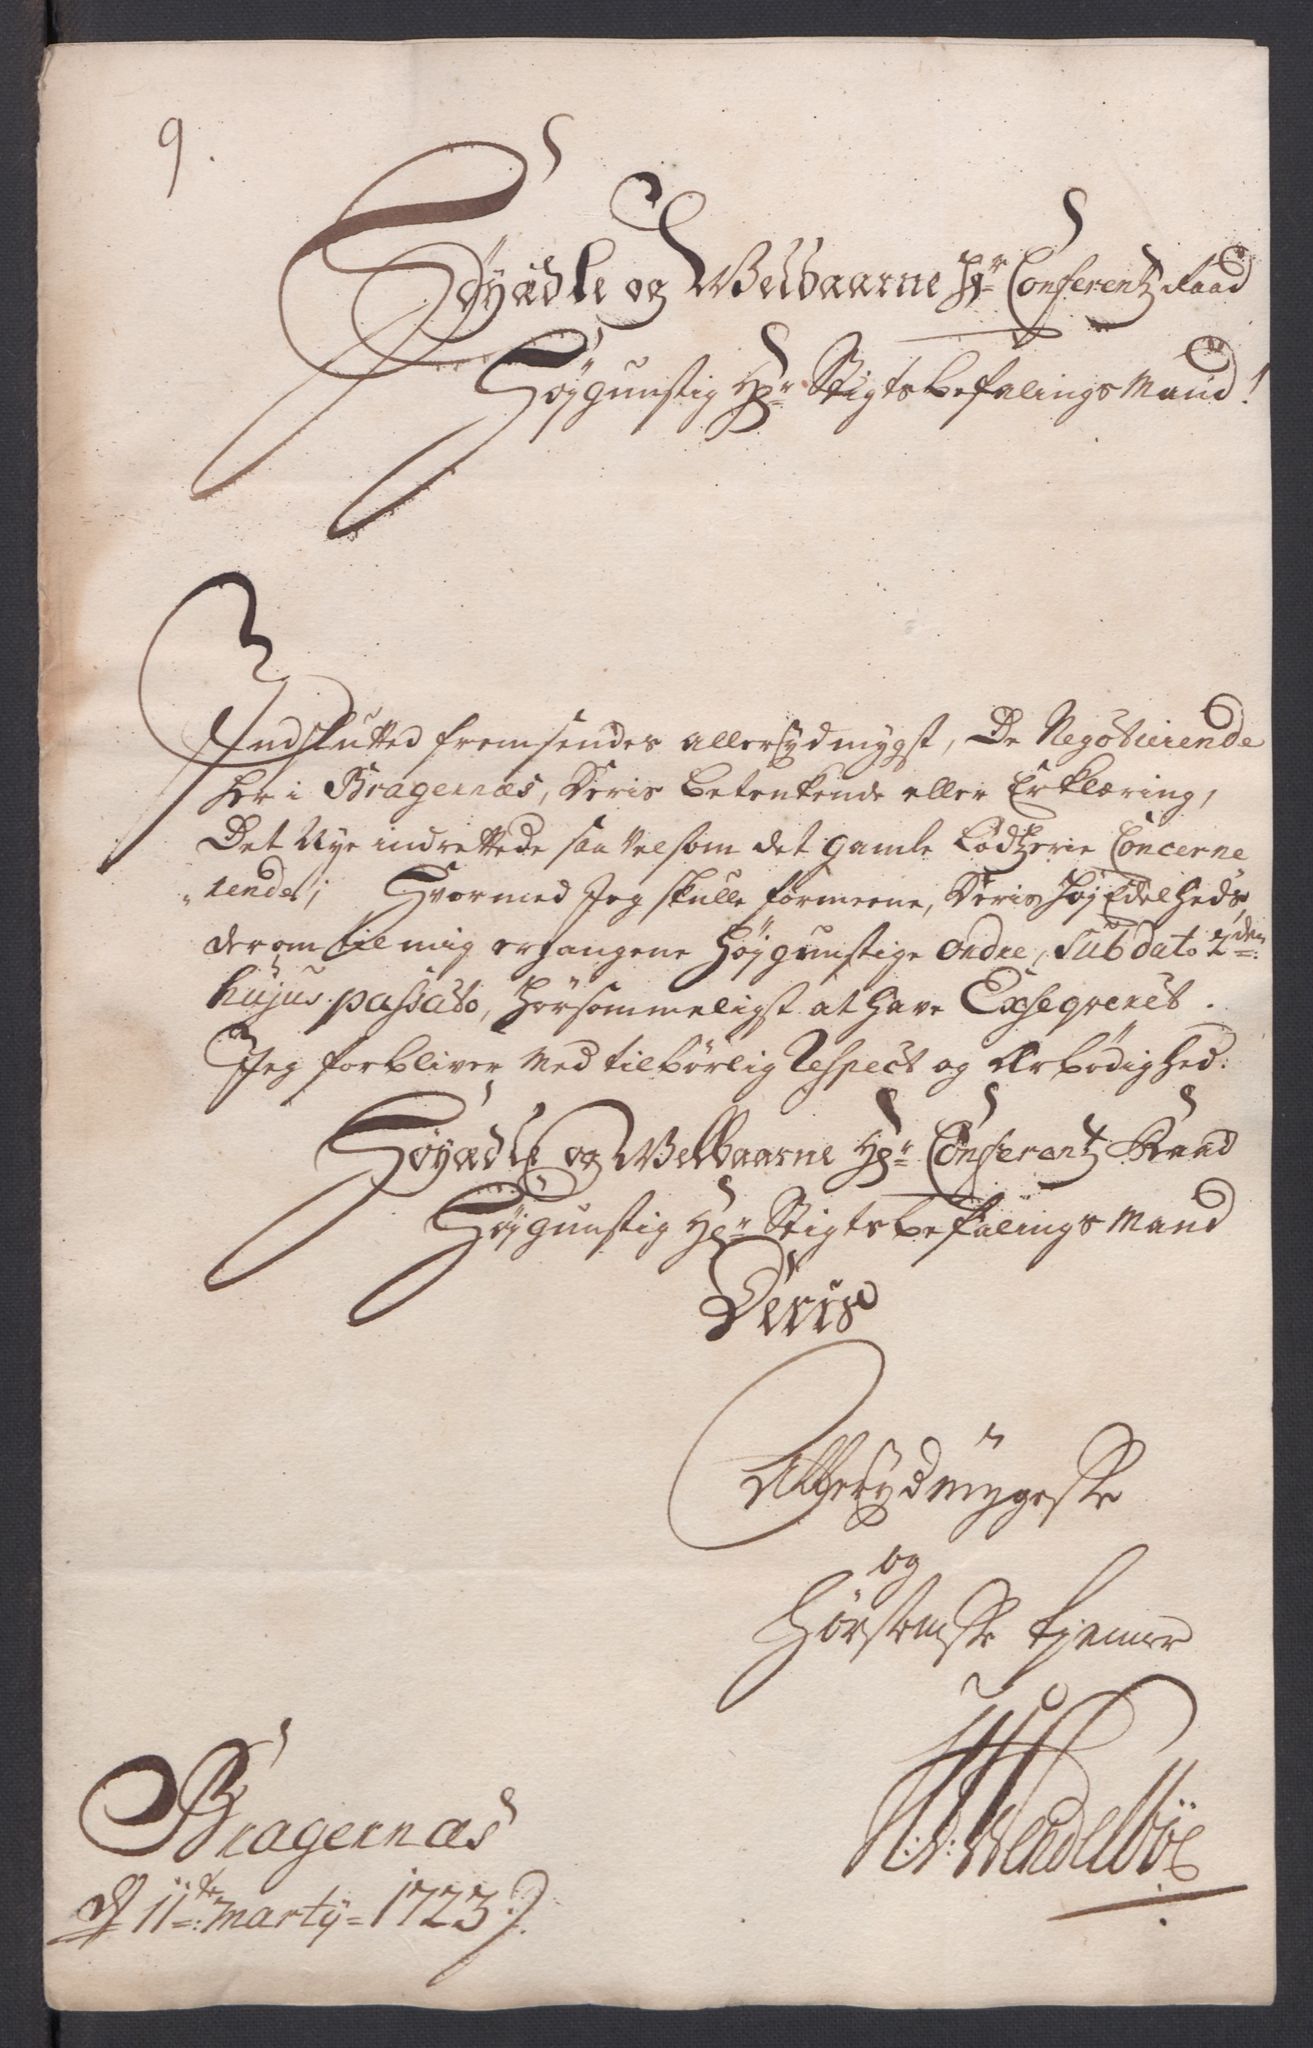 9.
Høyædle og Welbaarne Hr Conferentz Raad
Høygunstig Hr Stigtsbefalings Mand!
Indslutted fremsendes allerydmygst, De Negotierende
her i Bragernæs, Deris betenkende eller Erklæring,
Det Nye indrettede saa vel som det gamle Lodzerie Concerne
"rende; Hvormed Jeg skulle formeene, Deris Høj Edelheds,
derom til mig ergangene Høygunstige Ordre, sub dato 2den:
hujus passato, hørsommeligst at have Exseqveret.
Jeg forbliver med tilbørlig Respect og Ærbødighed.
Høyædle og Welbaarne Hr Conferentz Raad
Høygunstig Hr Stigtsbefalings Mand
Deris
Allerydmygeste
og
Hørsomste tjener
N: W: Wendelboe
Bragernæs
d 11te: Marty = 1723